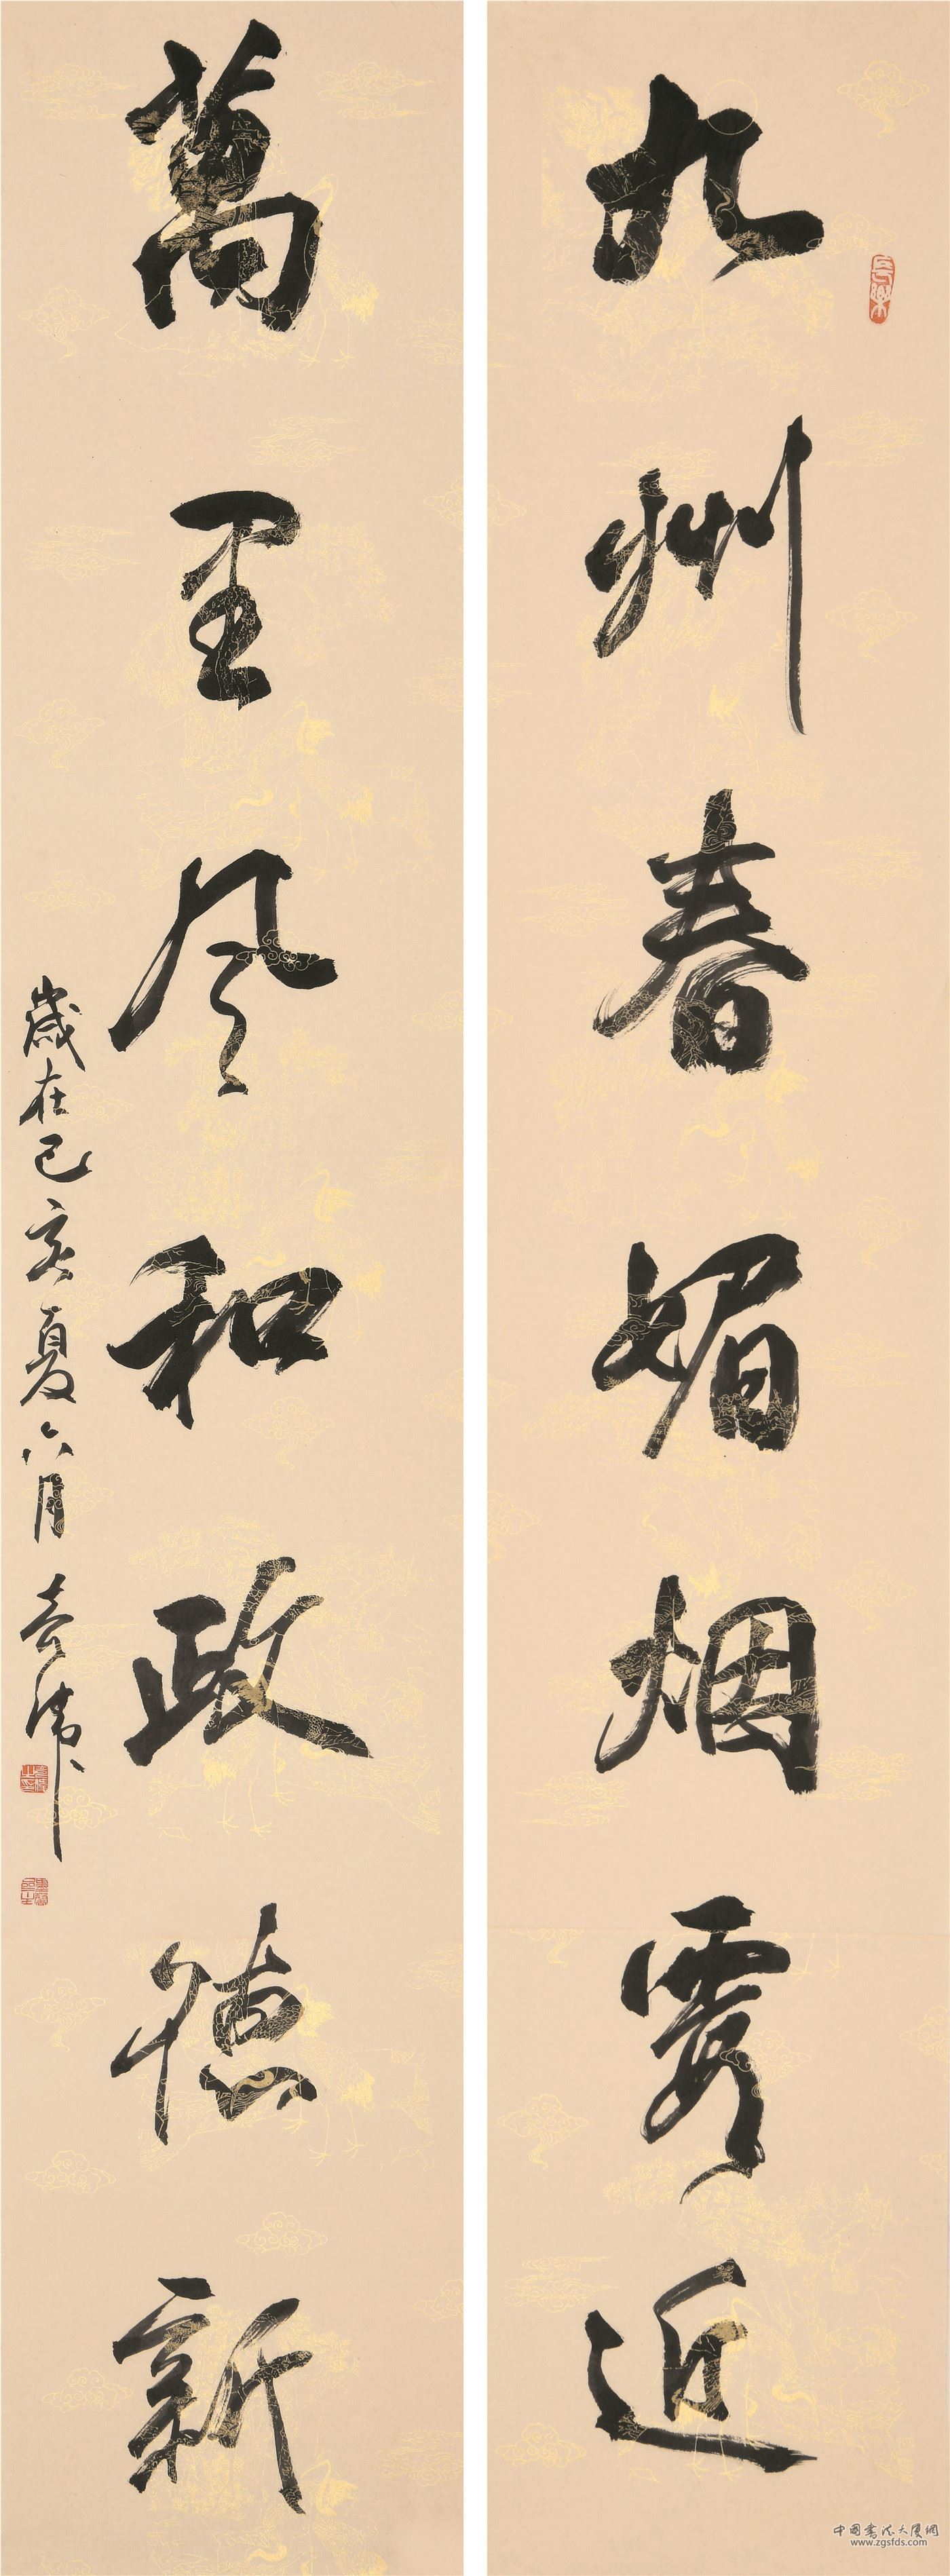 九州春媚烟霞近
萬里风和政德新
歲在己亥夏六月
中国书法大厦網
www.zgsfds.com